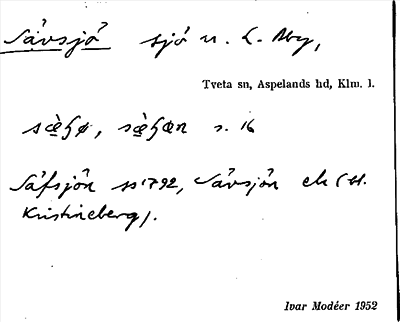 Sävsjö sjö n. L. Aby,
Tveta sn, Aspelands hd, Klm. l.
s. 16
Säfsjön 1792, Sävsjön ek (bl.
Kristineberg).
Ivar Modéer 1952